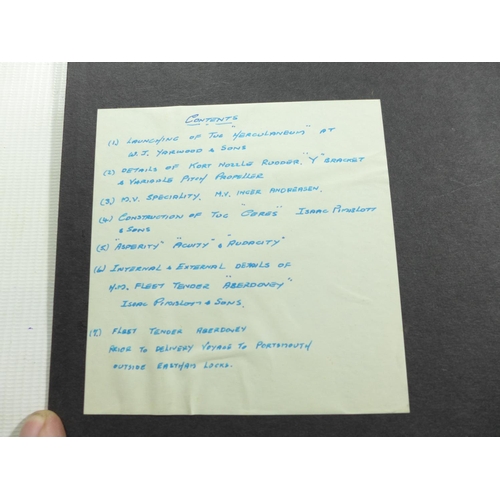 Contents
(1) Launching of Tug "Herculaneum" at
W.J. Yarwood & Sons
(2) Details of Kort Nozzle Rudder, "Y" Bracket
& Variable Pitch Propeller
(3) M.V. Speciality. M.V. Inger Andersen.
(4) Construction of Tug "Ceres" Isaac Pimblott
& Sons
(5) "Asperity" "Acuity" & "Audacity"
(6) Internal & External Details of
H.M. Fleet Tender "Aberdovey"
Isaac Pimblott & Sons.
(7) Fleet Tender Aberdovey
Prior to Delivery Voyage to Portsmouth
outside Eastham Locks.